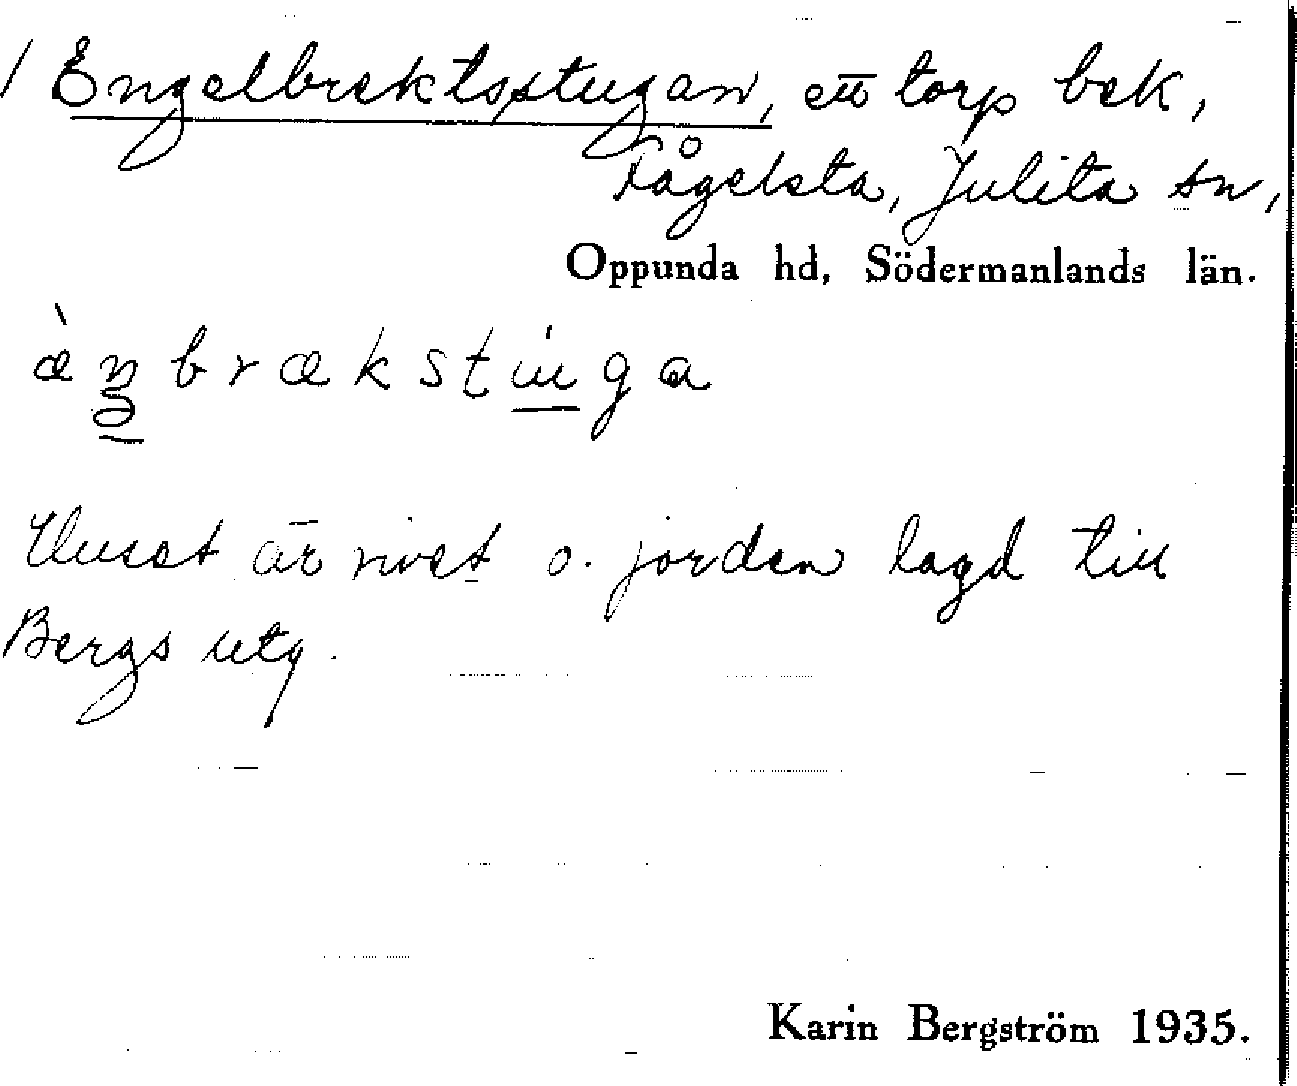 / Engelbrektsstugan, ett torp bek,
Fågelsta, Julita sn,
Oppunda hd, Södermanlands län.
Huset är rivet o. jorden lagd till
Bergs utg.
Karin Bergström 1935.